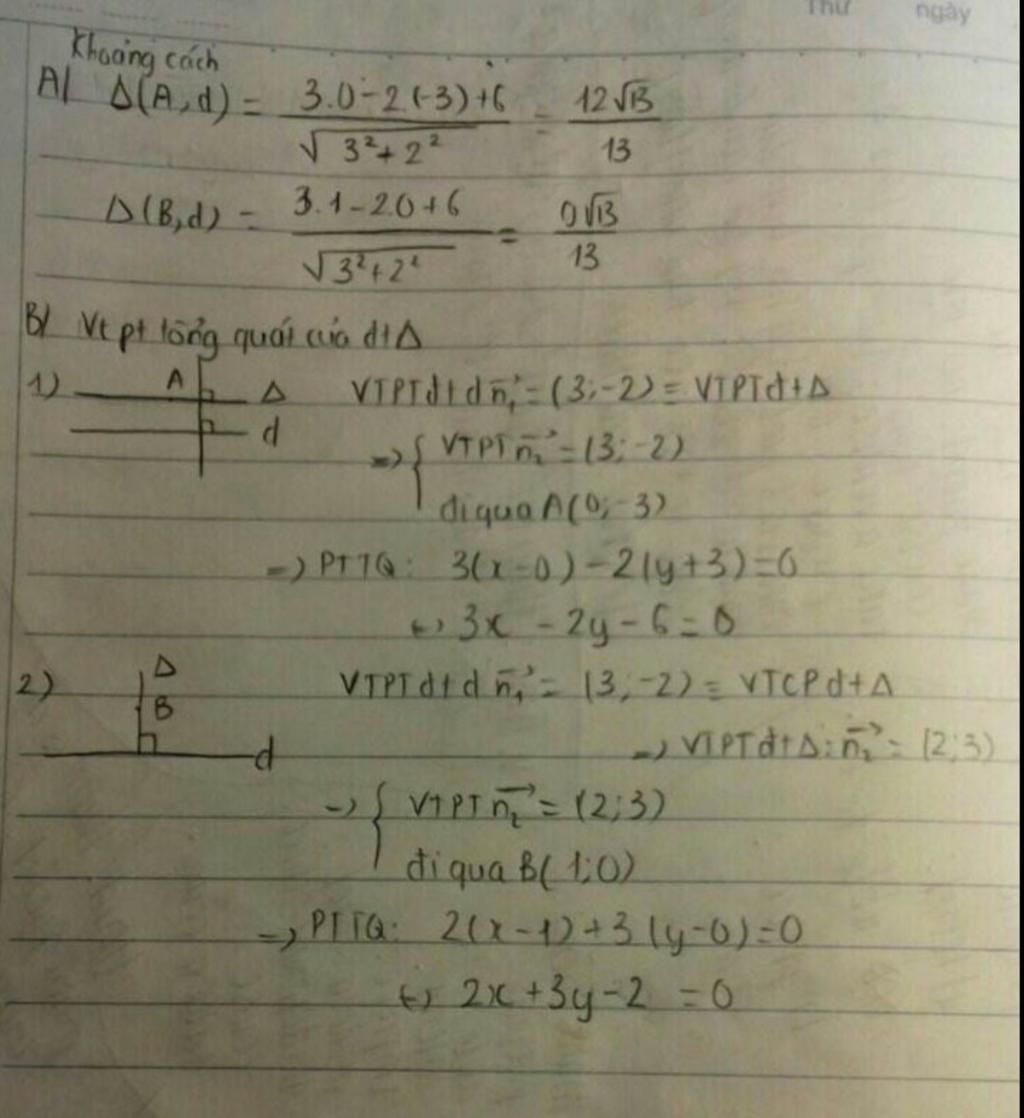 Thứ ngày
Khoảng cách
A/ Δ(A,d) = 3.0-2(-3)+6 / √3²+2² = 12√13 / 13
Δ(B,d) = 3.1-2.0+6 / √3²+2² = 9√13 / 13
B/ Vt pt tổng quát của đt Δ
1) A Δ d VTPT đt d n₁→ = (3;-2) = VTPT đt Δ
=> { VTPT n₂→ = (3;-2)
đi qua A(0;-3)
=> PTTQ: 3(x-0)-2(y+3)=0
<=> 3x-2y-6=0
2) Δ B d VTPT đt d n₁→ = (3;-2) = VTCP đt Δ
=> VTPT đt Δ: n₂→ = (2;3)
=> { VTPT n₂→ = (2;3)
đi qua B(1;0)
=> PTTQ: 2(x-1)+3(y-0)=0
<=> 2x+3y-2=0